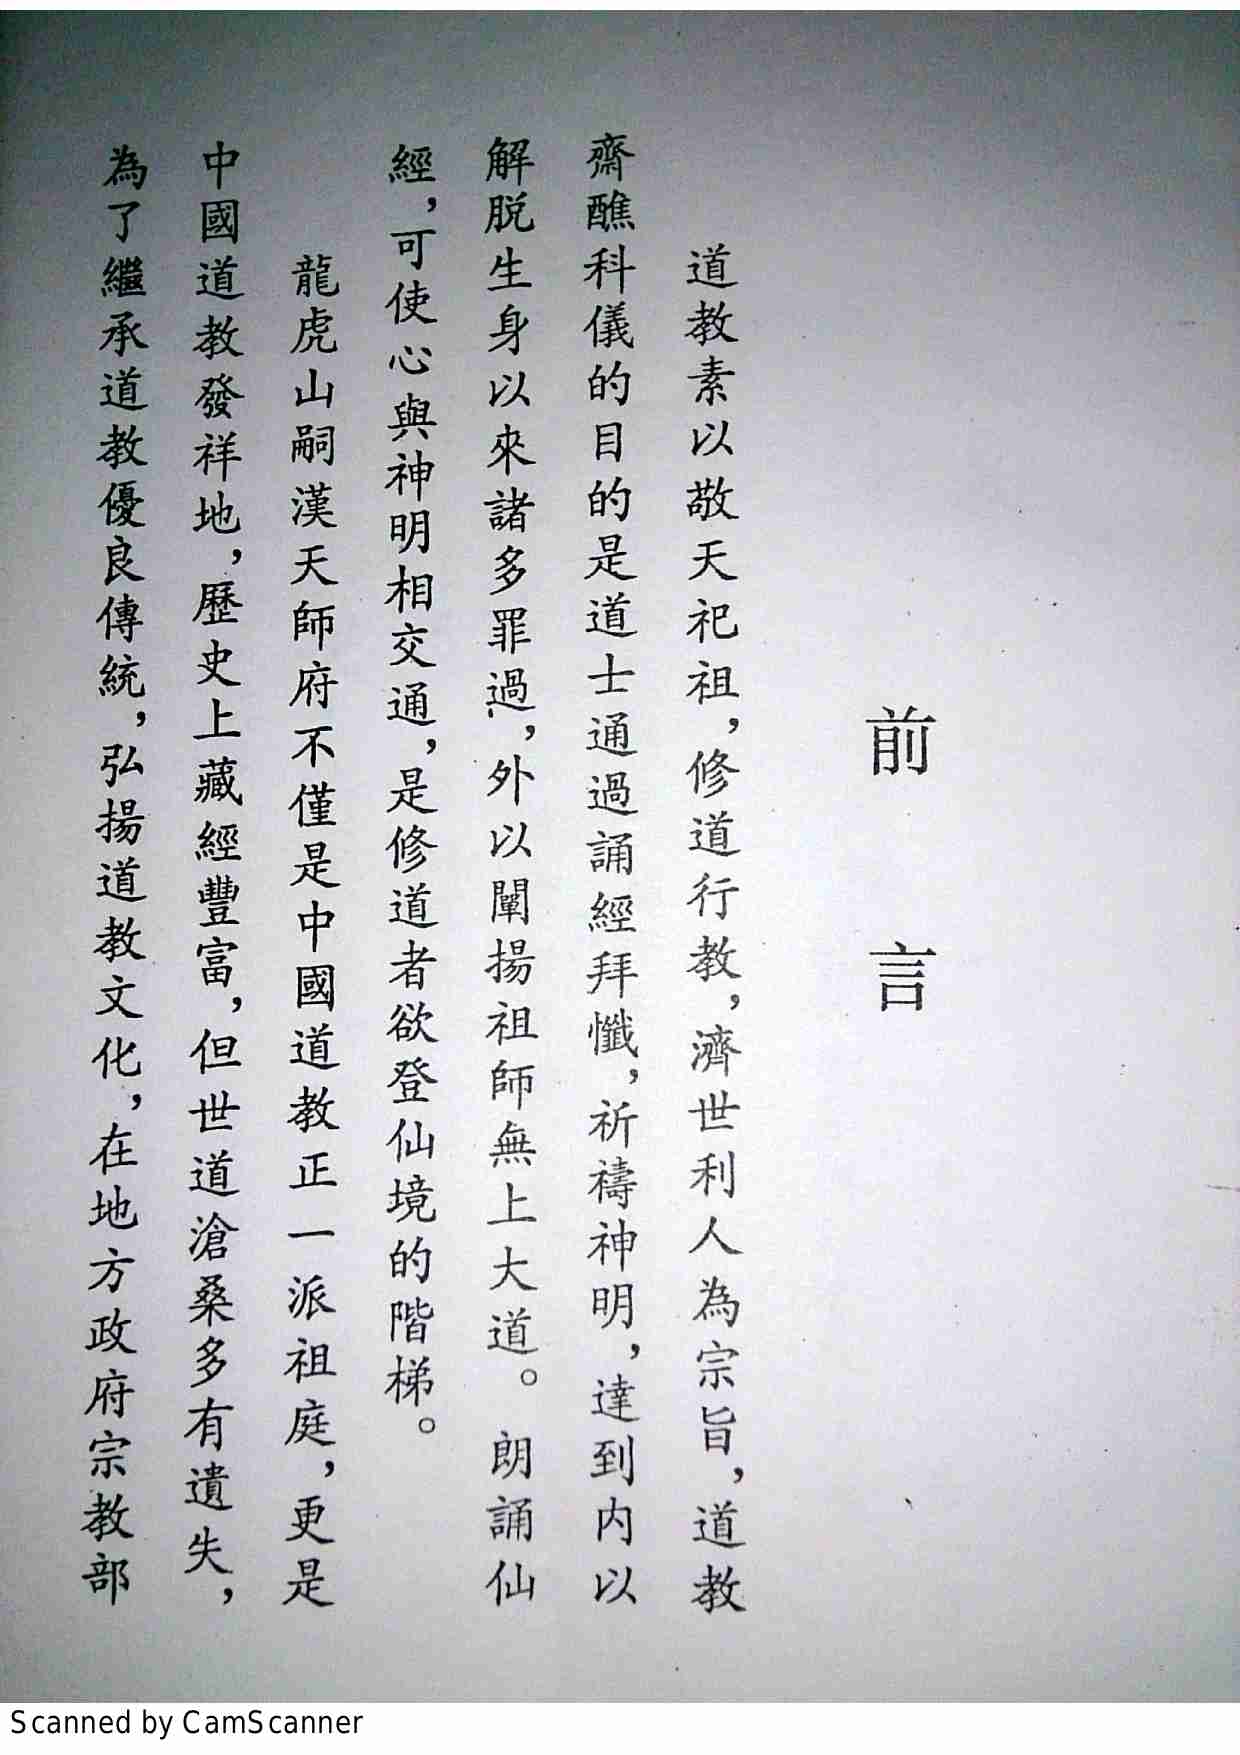 前言
道教素以敬天祀祖，修道行教，濟世利人為宗旨，道教
齋醮科儀的目的是道士通過誦經拜懺，祈禱神明，達到内以
解脱生身以來諸多罪過，外以闡揚祖師無上大道。朗誦仙
經，可使心與神明相交通，是修道者欲登仙境的階梯。
龍虎山嗣漢天師府不僅是中國道教正一派祖庭，更是
中國道教發祥地，歷史上藏經豐富，但世道滄桑多有遺失，
為了繼承道教優良傳統，弘揚道教文化，在地方政府宗教部
Scanned by CamScanner